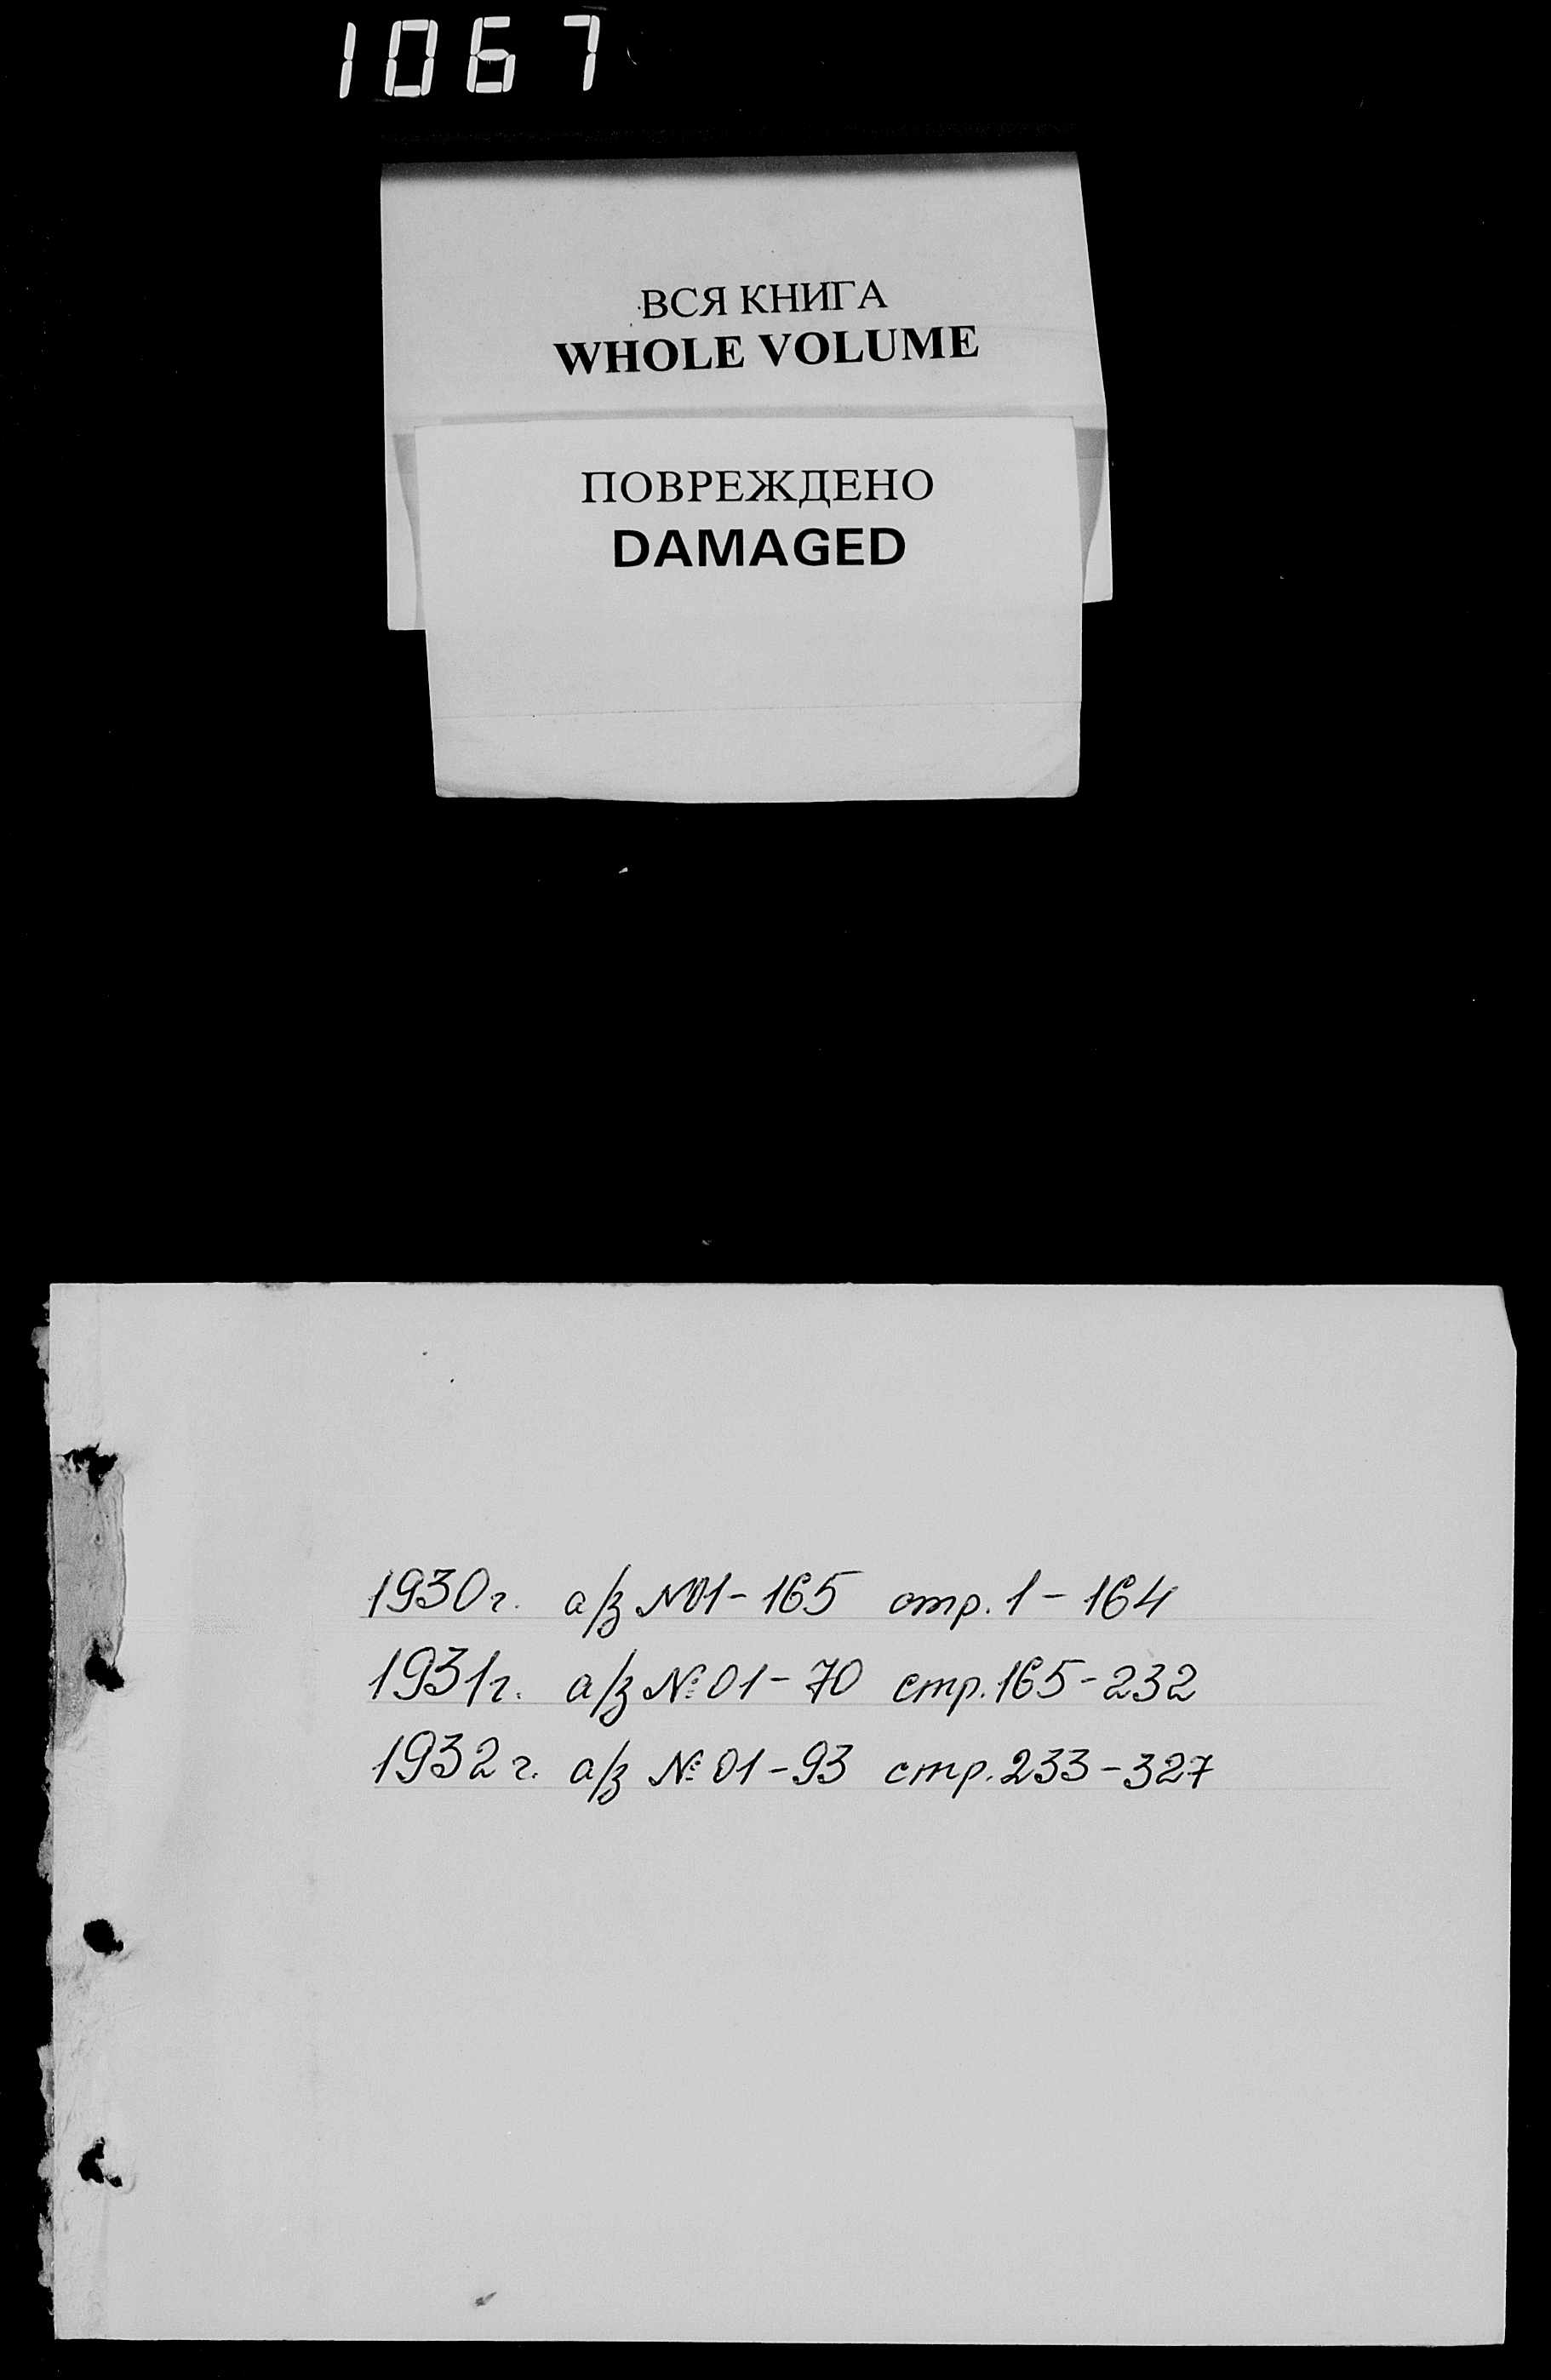 1067
ВСЯ КНИГА
WHOLE VOLUME
ПОВРЕЖДЕНО
DAMAGED
1930г. а/з №01-165 стр. 1-164
1931г. а/з № 01-70 стр. 165-232
1932г. а/з № 01-93 стр. 233-327